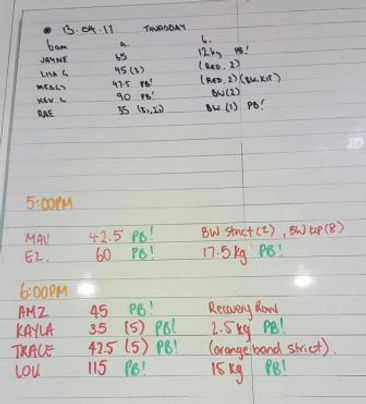 • 13.04.17 THURSDAY
6am a. b.
JAYNE 65 12kg PB!
LISA G 45 (3) (RED, 2)
47.5 PB! (RED, 2) (BW.KIP)
KEV L 90 PB! BW(2)
RAE 35 BW (1) PB!
20
5:00PM
MAV 42.5 PB! BW Strict (2), BW KIP (8)
EZ. 60 PB! 17.5kg PB!
6:00PM
AMZ 45 PB! Recovery Row
KAYLA 35 (5) PB! 2.5kg PB!
TRACE 42.5 (5) PB! (orange band strict).
LOU 115 PB! 15kg PB!